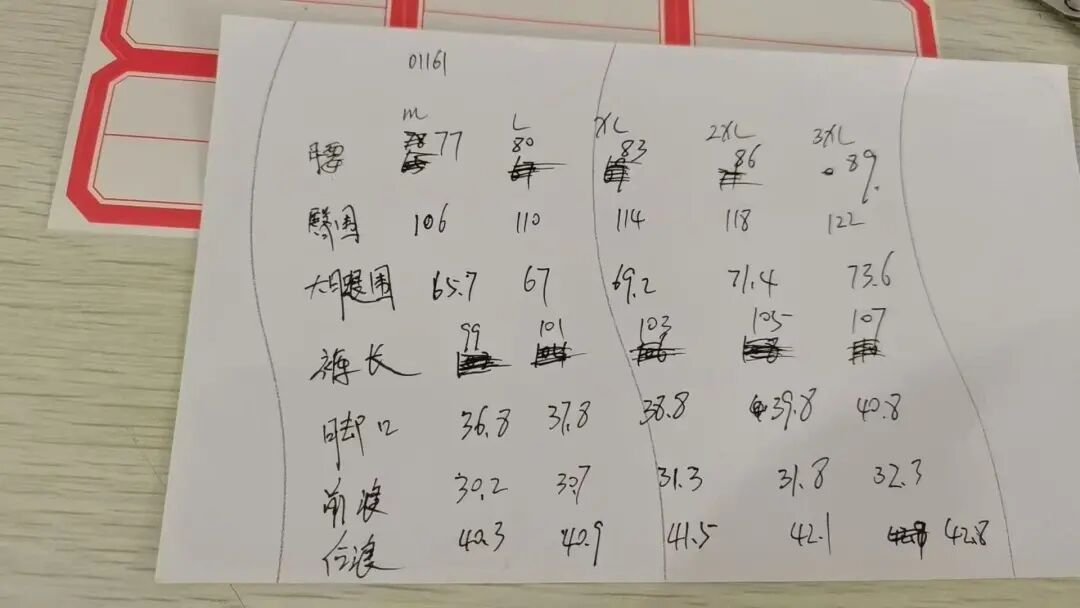 01161
M L XL 2XL 3XL
腰 77 80 83 86 89.
臀围 106 110 114 118 122
大腿围 65.7 67 69.2 71.4 73.6
裤长 99 101 103 105 107
脚口 36.8 37.8 38.8 39.8 40.8
前浪 30.2 30.7 31.3 31.8 32.3
后浪 40.3 40.9 41.5 42.1 42.8